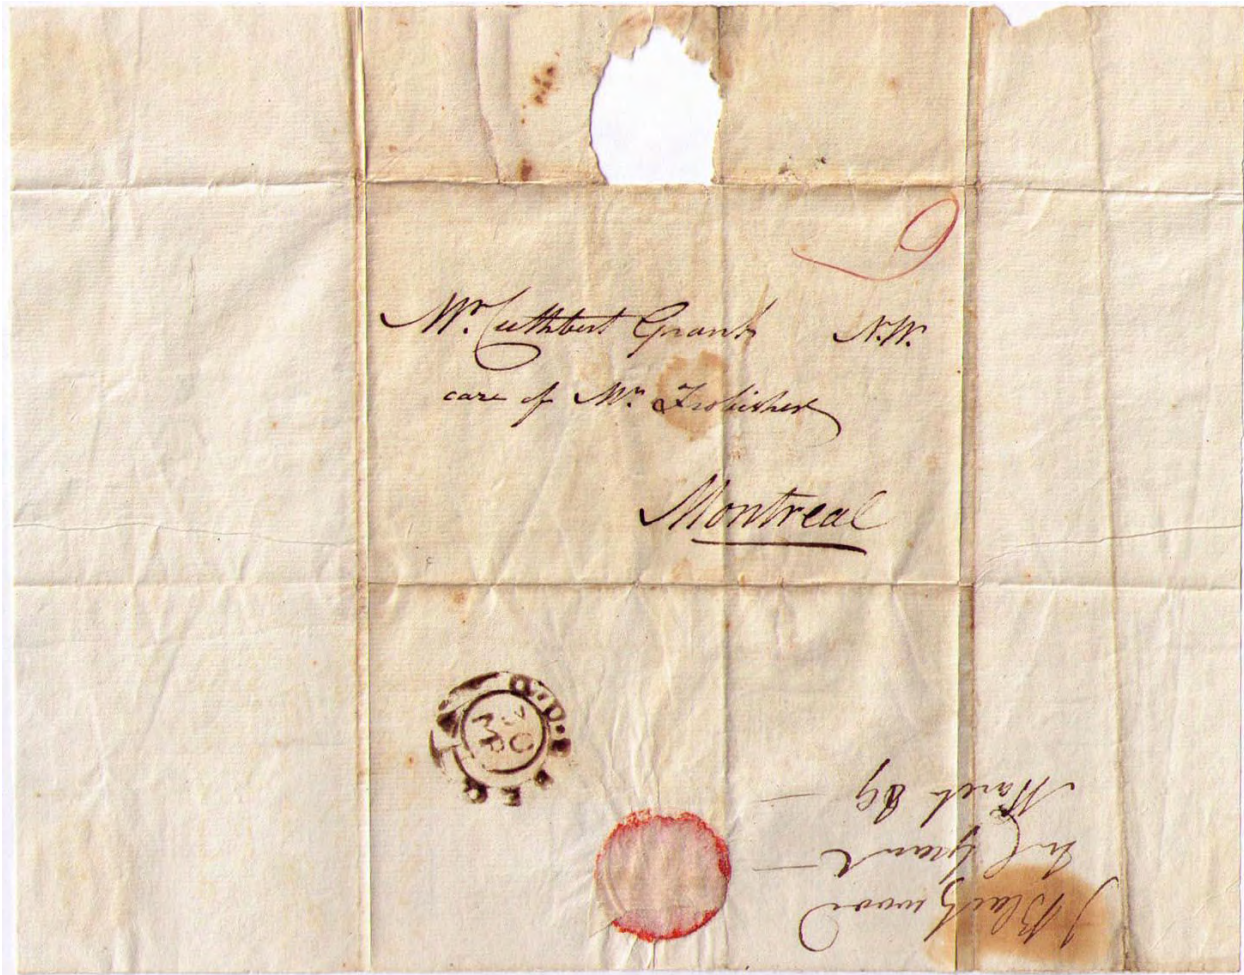 9
Mr. Cuthbert Grant N.W.
care of Mr. Frobisher
Montreal
QUEBEC
30
MR
J Blackwood
Grant
March 89